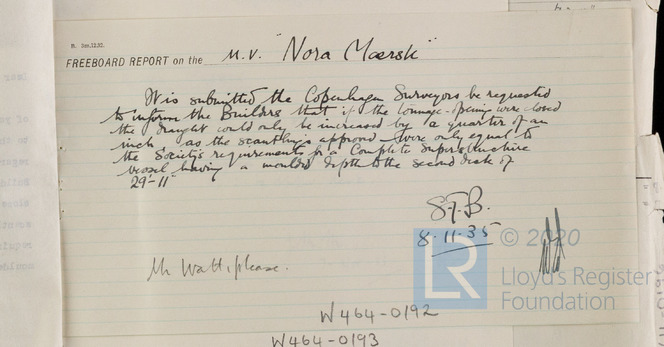 R. 3m.12.32.
FREEBOARD REPORT on the M.V. "Nora Mærsk"
It is submitted the Copenhagen Surveyors be requested
to inform the Builders that if the tonnage opening were closed
the draught could only be increased by a quarter of an
inch as the scantlings approved were only equal to
the Society's requirements for a Complete Superstructure
vessel having a moulded depth to the second deck of
29'-11"
S.F.B.
8.11.35
© 2020
LR
Lloyd's Register
Foundation
Mr Watt, please.
W464-0192
W464-0193